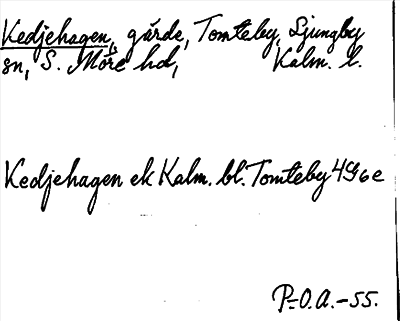 Kedjehagen, gärde, Tomteby, Ljungby
sn, S. Möre hd, Kalm. l.
Kedjehagen ek Kalm. bl. Tomteby 4G6e
P-O.A.-55.